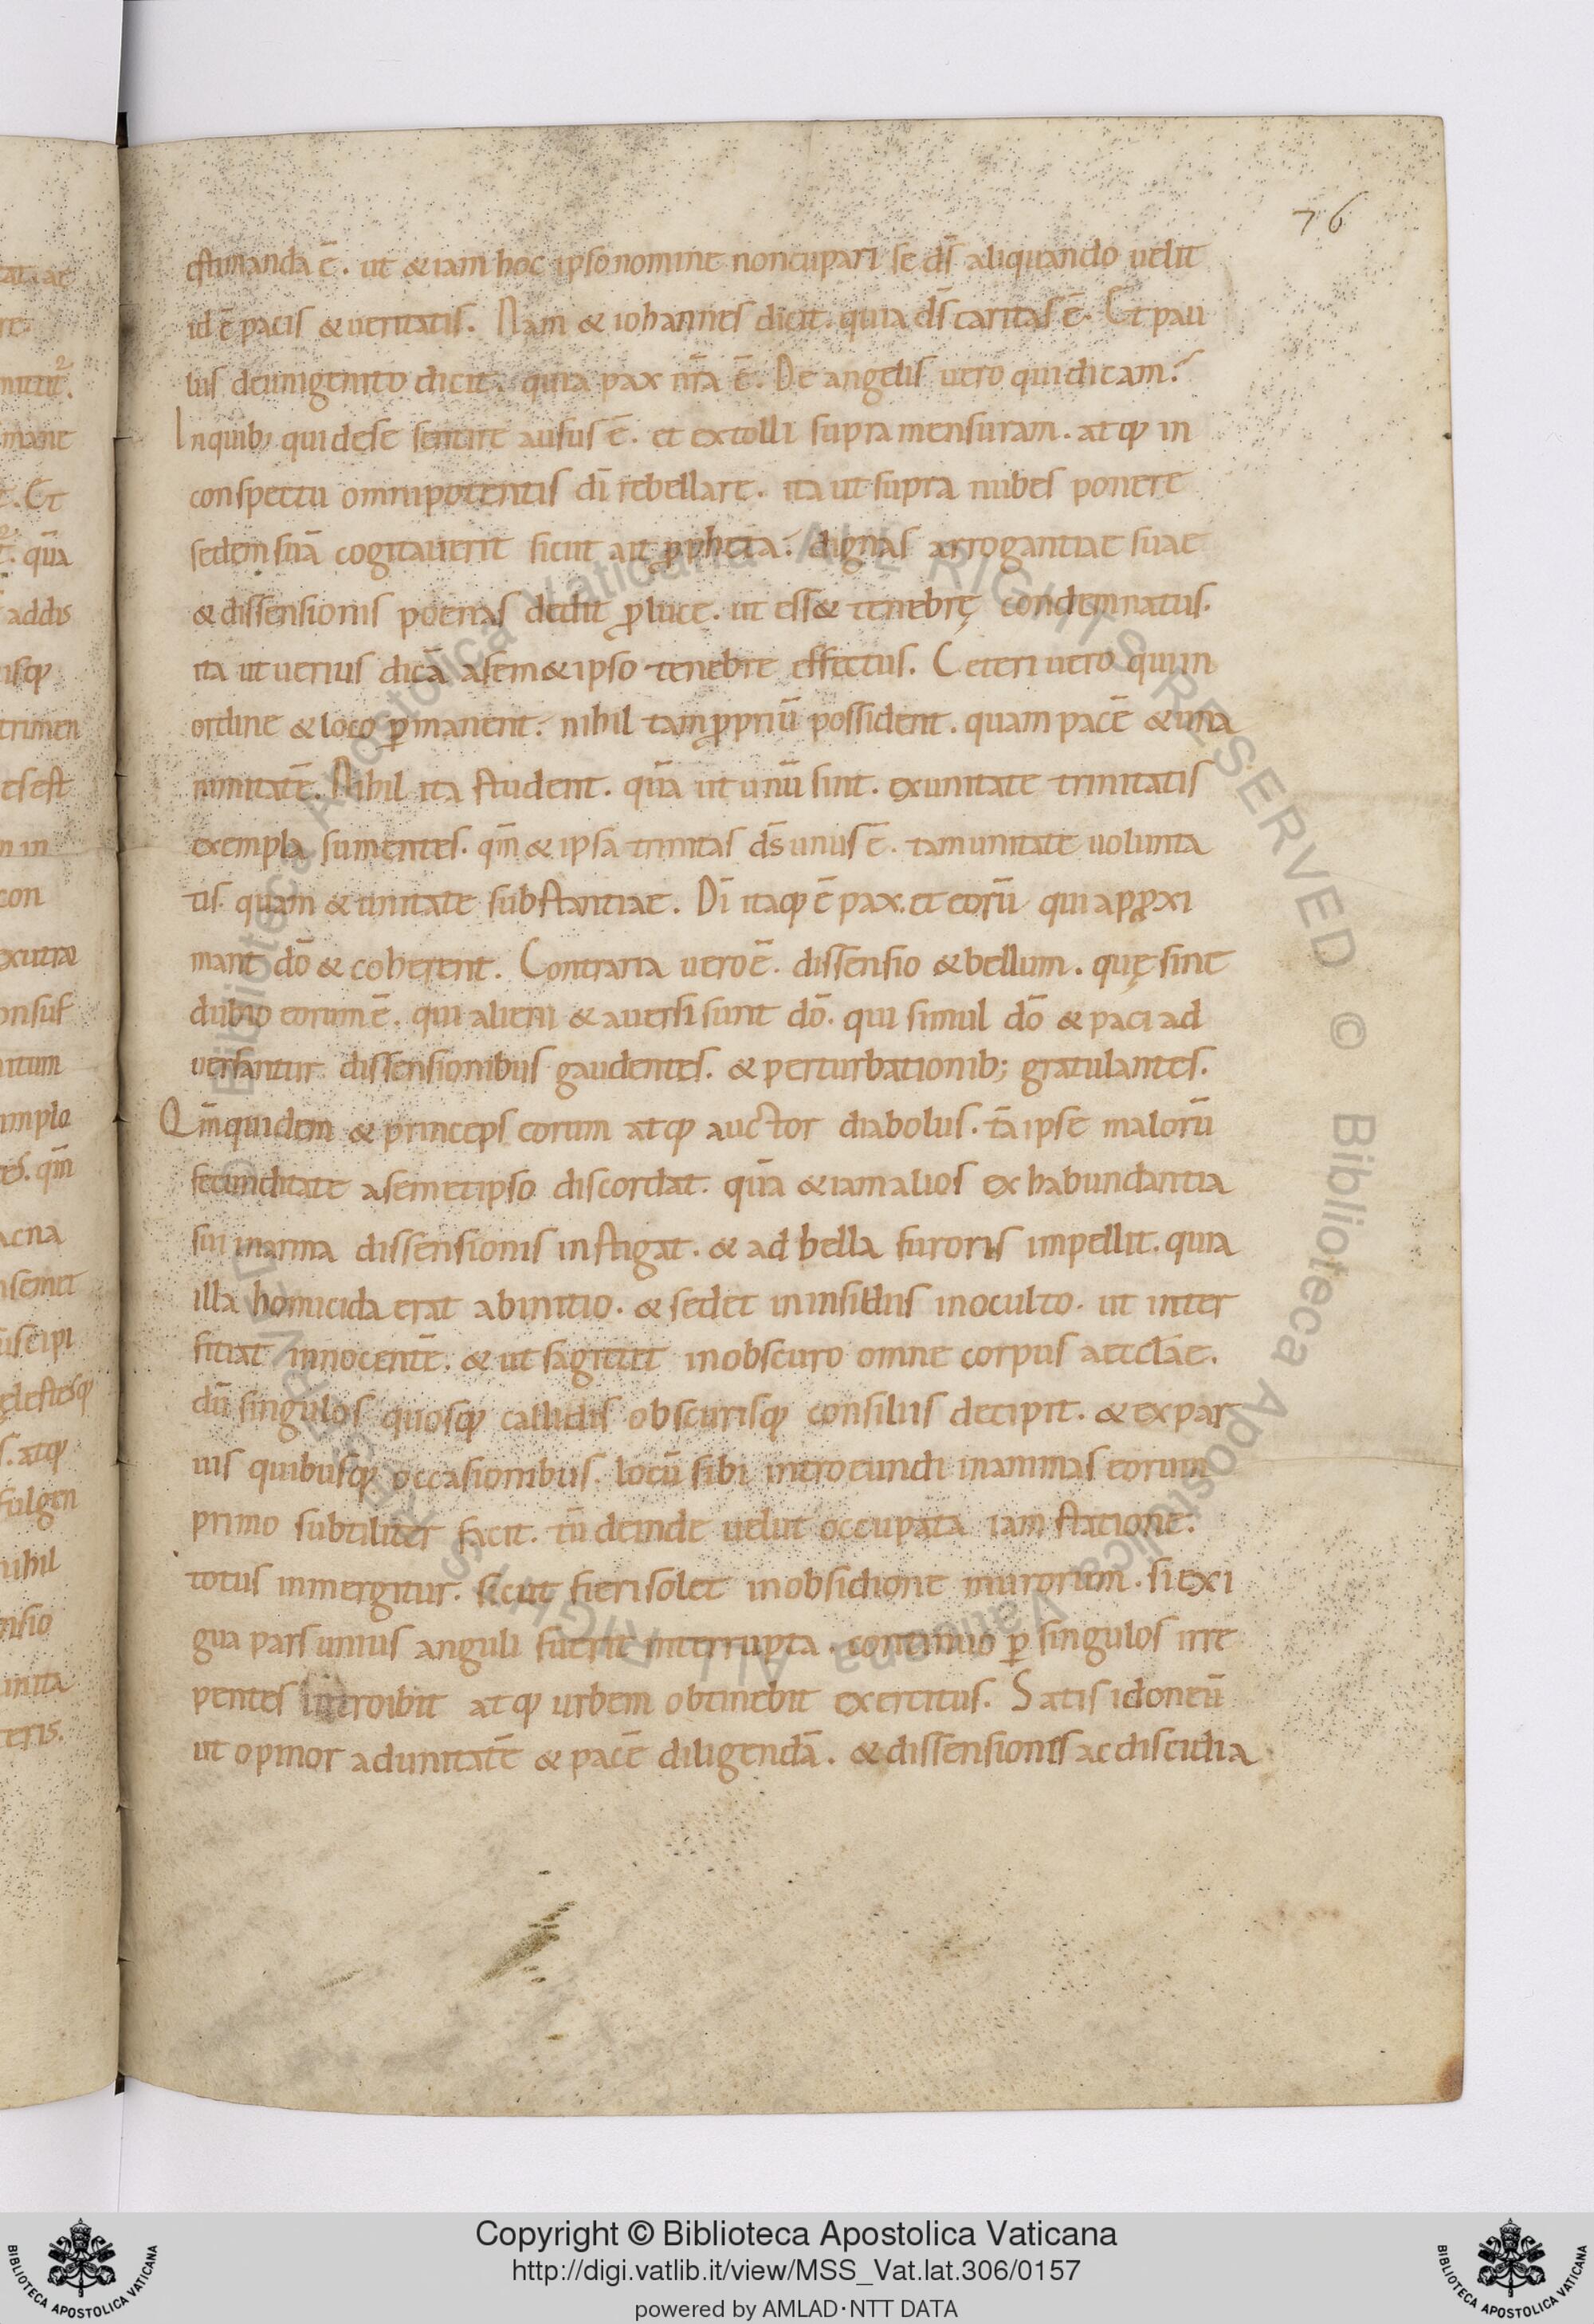 76
estimanda ē. ut &iam hoc ipso nomine noncupari se ds̄ aliquando uelit
id ē pacis & ueritatis. Nam & iohannes dicit. quia ds̄ caritas ē. Et pau
lus deunigenito dicit. quia pax nr̄a ē. De angelis uero quidicam?
Inquib; quidese sentire ausus ē. et extolli supra mensuram. atq; in
conspectu omnipotentis dī rebellare. ita ut supra nubes ponere
sedem suā cogitauerit sicut ait ꝓpheta? dignas arrogantiae suae
& dissensionis poenas dedit ꝓluce. ut ess& tenebrę condemnatus.
ita ut uerius dicā asem&ipso tenebre effectus. Ceteri uero quiin
ordine & loco ꝑmanent? nihil tam ꝓpriū possident. quam pacē & una
nimitatē. Nihil ita student. quā ut unū sint. exunitate trinitatis
exempla sumentes. qm̄ & ipsa trinitas ds̄ unus ē. tam unitate uolunta
tis. quam & unitate substantiae. Dī itaq; ē pax. et eorū qui apꝓxi
mant dō & coherent. Contraria uero ē. dissensio & bellum. quę sine
dubio eorum ē. qui alieni & auersi sunt dō. qui simul dō & paci ad
uersantur dissensionibus gaudentes. & perturbationib; gratulantes.
Qm̄quidem & princeps eorum atq; auctor diabolus. tā ipse malorū
fecunditate asemetipso discordat. quā &iam alios ex habundantia
sui inarma dissensionis instigat. & ad bella furoris impellit. quia
illa homicida erat abinitio. & sedet ininsidiis inoculto. ut inter
ficiat innocentē. & ut sagittet inobscuro omne corpus aecclāe.
dū singulos quosq; callidis obscurisq; consiliis decipit. & expar
uis quibusq; occasionibus. locū sibi introeundi inanimas eorum
primo subtiliter facit. tū deinde uelut occupata iam statione.
totus inmergitur. sicut fieri solet inobsidione murorum. si exi
gua pars unius anguli fuerit interrupta. continuo ꝑ singulos irre
pentes introibit atq; urbem obtinebit exercitus. Satis idoneū
ut opinor adunitatē & pacē diligendā. & dissensionis ac discidia
Copyright © Biblioteca Apostolica Vaticana
http://digi.vatlib.it/view/MSS_Vat.lat.306/0157
powered by AMLAD·NTT DATA